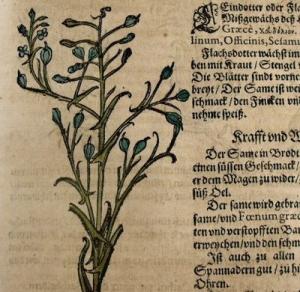 Leindotter oder Fla
Mißgewächs deß
Græcè,
linum, Officinis, Sesam
Flachsdotter wächst im
ben mit Kraut / Stengel
Die Blätter sindt vorne
breyt / Der Same ist weit
schmack / den Fincken vn
nehme speiß.
Krafft vnd W
Der Same in Brodt
etnen süssen Geschmack /
er dem Magen zu wider /
süß Oel.
Der same wird gebra
same / vnd Fœnumgræc
ten vnd verstopfften Ban
erweychen / vnd den schm
Ist auch zu allen
Spannadern gut / zu hi
Ohren.